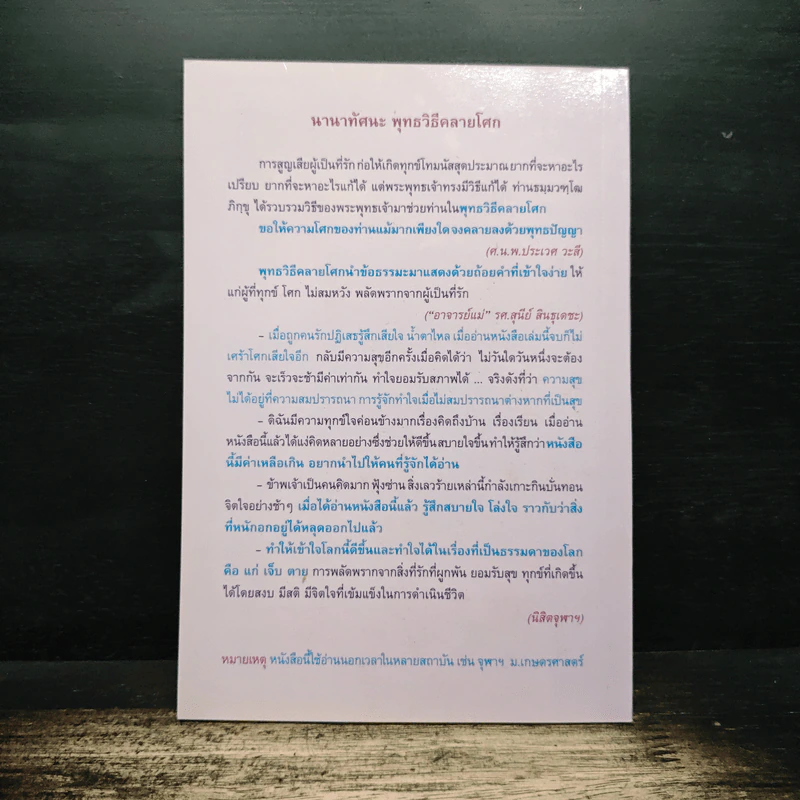 นานาทัศนะ พุทธวิธีคลายโศก
การสูญเสียผู้เป็นที่รัก ก่อให้เกิดทุกข์โทมนัสสุดประมาณ ยากที่จะหาอะไร
เปรียบ ยากที่จะหาอะไรแก้ได้ แต่พระพุทธเจ้าทรงมีวิธีแก้ได้ ท่านธมฺมวฑฺโฒ
ภิกฺขุ ได้รวบรวมวิธีของพระพุทธเจ้ามาช่วยท่านในพุทธวิธีคลายโศก
ขอให้ความโศกของท่านแม้มากเพียงใดจงคลายลงด้วยพุทธปัญญา
(ศ.น.พ.ประเวศ วะสี)
พุทธวิธีคลายโศกนำข้อธรรมะมาแสดงด้วยถ้อยคำที่เข้าใจง่าย ให้
แก่ผู้ที่ทุกข์ โศก ไม่สมหวัง พลัดพรากจากผู้เป็นที่รัก
("อาจารย์แม่" รศ.สุนีย์ สินธุเดชะ)
– เมื่อถูกคนรักปฏิเสธรู้สึกเสียใจ น้ำตาไหล เมื่ออ่านหนังสือเล่มนี้จบก็ไม่
เศร้าโศกเสียใจอีก กลับมีความสุขอีกครั้งเมื่อคิดได้ว่า ไม่วันใดวันหนึ่งจะต้อง
จากกัน จะเร็วจะช้ามีค่าเท่ากัน ทำใจยอมรับสภาพได้ ... จริงดังที่ว่า ความสุข
ไม่ได้อยู่ที่ความสมปรารถนา การรู้จักทำใจเมื่อไม่สมปรารถนาต่างหากที่เป็นสุข
– ดิฉันมีความทุกข์ใจค่อนข้างมากเรื่องคิดถึงบ้าน เรื่องเรียน เมื่ออ่าน
หนังสือนี้แล้วได้แง่คิดหลายอย่างซึ่งช่วยให้ดีขึ้น สบายใจขึ้น ทำให้รู้สึกว่าหนังสือ
นี้มีค่าเหลือเกิน อยากนำไปให้คนที่รู้จักได้อ่าน
– ข้าพเจ้าเป็นคนคิดมาก ฟุ้งซ่าน สิ่งเลวร้ายเหล่านี้กำลังเกาะกินบั่นทอน
จิตใจอย่างช้าๆ เมื่อได้อ่านหนังสือนี้แล้ว รู้สึกสบายใจ โล่งใจ ราวกับว่าสิ่ง
ที่หนักอกอยู่ได้หลุดออกไปแล้ว
– ทำให้เข้าใจโลกนี้ดีขึ้นและทำใจได้ในเรื่องที่เป็นธรรมดาของโลก
คือ แก่ เจ็บ ตาย การพลัดพรากจากสิ่งที่รักที่ผูกพัน ยอมรับสุข ทุกข์ที่เกิดขึ้น
ได้โดยสงบ มีสติ มีจิตใจที่เข้มแข็งในการดำเนินชีวิต
(นิสิตจุฬาฯ)
หมายเหตุ หนังสือนี้ใช้อ่านนอกเวลาในหลายสถาบัน เช่น จุฬาฯ ม.เกษตรศาสตร์